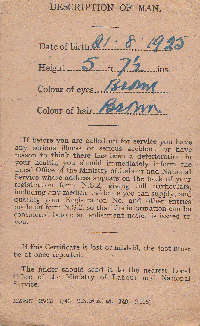 DESCRIPTION OF MAN.
Date of birth 21-8-1925
Height 5 ft. 7½ ins.
Colour of eyes Brown
Colour of hair Brown
If before you are called up for service you have
any serious illness or serious accident, or have
reason to think there has been a deterioration in
your health, you should immediately inform the
Local Office of the Ministry of Labour and National
Service whose address appears on the back of your
registration form N.S.2, giving full particulars,
including any medical evidence you can supply, and
quoting your Registration No. and other entries
on such form N.S.2, so that the information can be
considered before an enlistment notice is issued to
you.
If this Certificate is lost or mislaid, the fact must
be at once reported.
The finder should send it to the nearest Local
Office of the Ministry of Labour and National
Service.